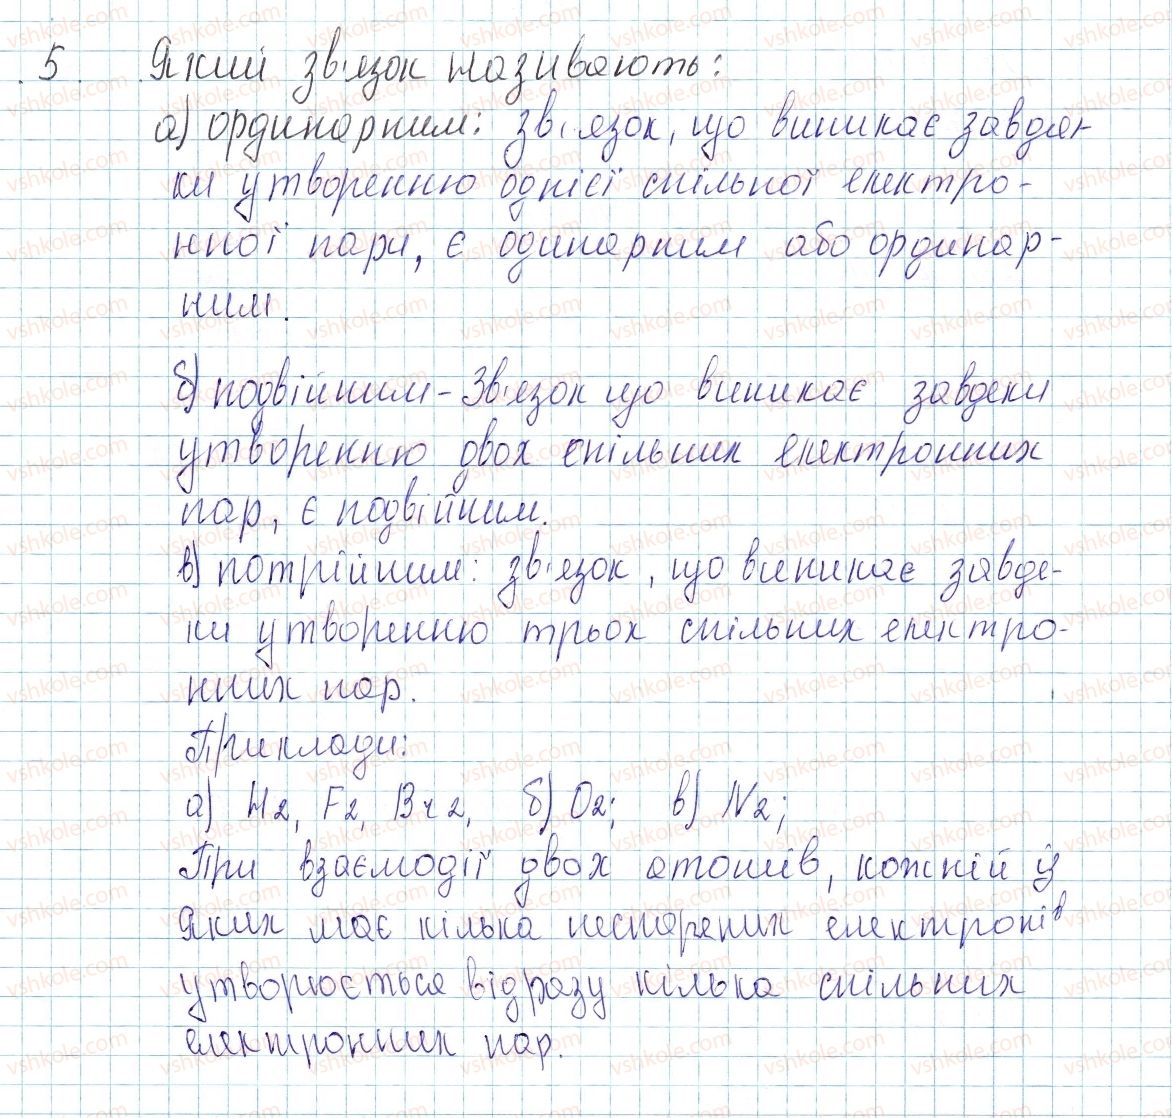 5. Який зв'язок називають:
а) ординарним: зв'язок, що виникає завдя-
ки утворенню однієї спільної електро-
нної пари, є одинарним або ординар-
ним.
б) подвійним - Зв'язок що виникає завдеки
утворенню двох спільних електронних
пар, є подвійним.
в) потрійним: зв'язок, що виникає завде-
ки утворенню трьох спільних електро-
нних пар.
Приклади:
а) H2, F2, Br2, б) O2; в) N2;
При взаємодії двох атомів, кожній із
яких має кілька неспарених електронів
утворюється відразу кілька спільних
електронних пар.